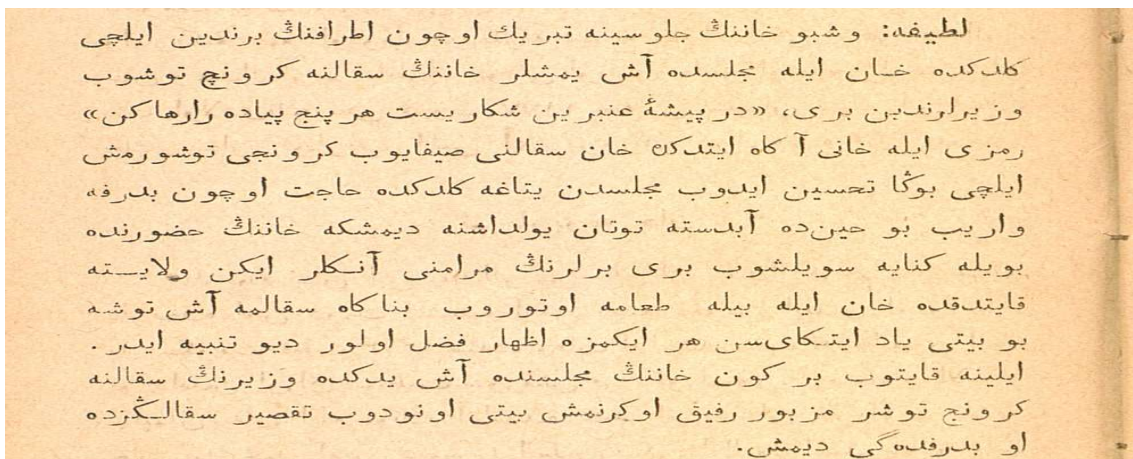 لطيفه: وشبو خاننڭ جلوسينه تبريك اوچون اطرافنڭ برندين ايلچى
كلدكده خان ايله مجلسده آش يمشلر خاننڭ سقالنه كرونچ توشوب
وزيرلرندين برى، «در پيشهٔ عنبرين شكاريست هر پنج پياده رارها كن»
رمزى ايله خانى آكاه ايتدكده خان سقالنى صيفايوب كرونجى توشورمش
ايلچى بوڭا تحسين ايدوب مجلسدن يتاغه كلدكده حاجت اوچون بدرفه
واريب بو حين‌ده آبدسته توتان يولداشنه ديمشكه خاننڭ حضورنده
بويله كنايه سويلشوب برى برلرنڭ مرامنى آنكلر ايكن ولايـسته
قايتدقده خان ايله بيله طعامه اوتوروب بناكاه سقالمه آش توشه
بو بيتى ياد ايتكاى‌سن هر ايكمزه اظهار فضل اولور ديو تنبيه ايدر.
ايلينه قايتوب بر كون خاننڭ مجلسنده آش يدكده وزيرنڭ سقالنه
كرونج توشر مزبور رفيق اوكرنمش بيتى اونودوب تقصير سقالـڭزده
او بدرفده‌گى ديمش.